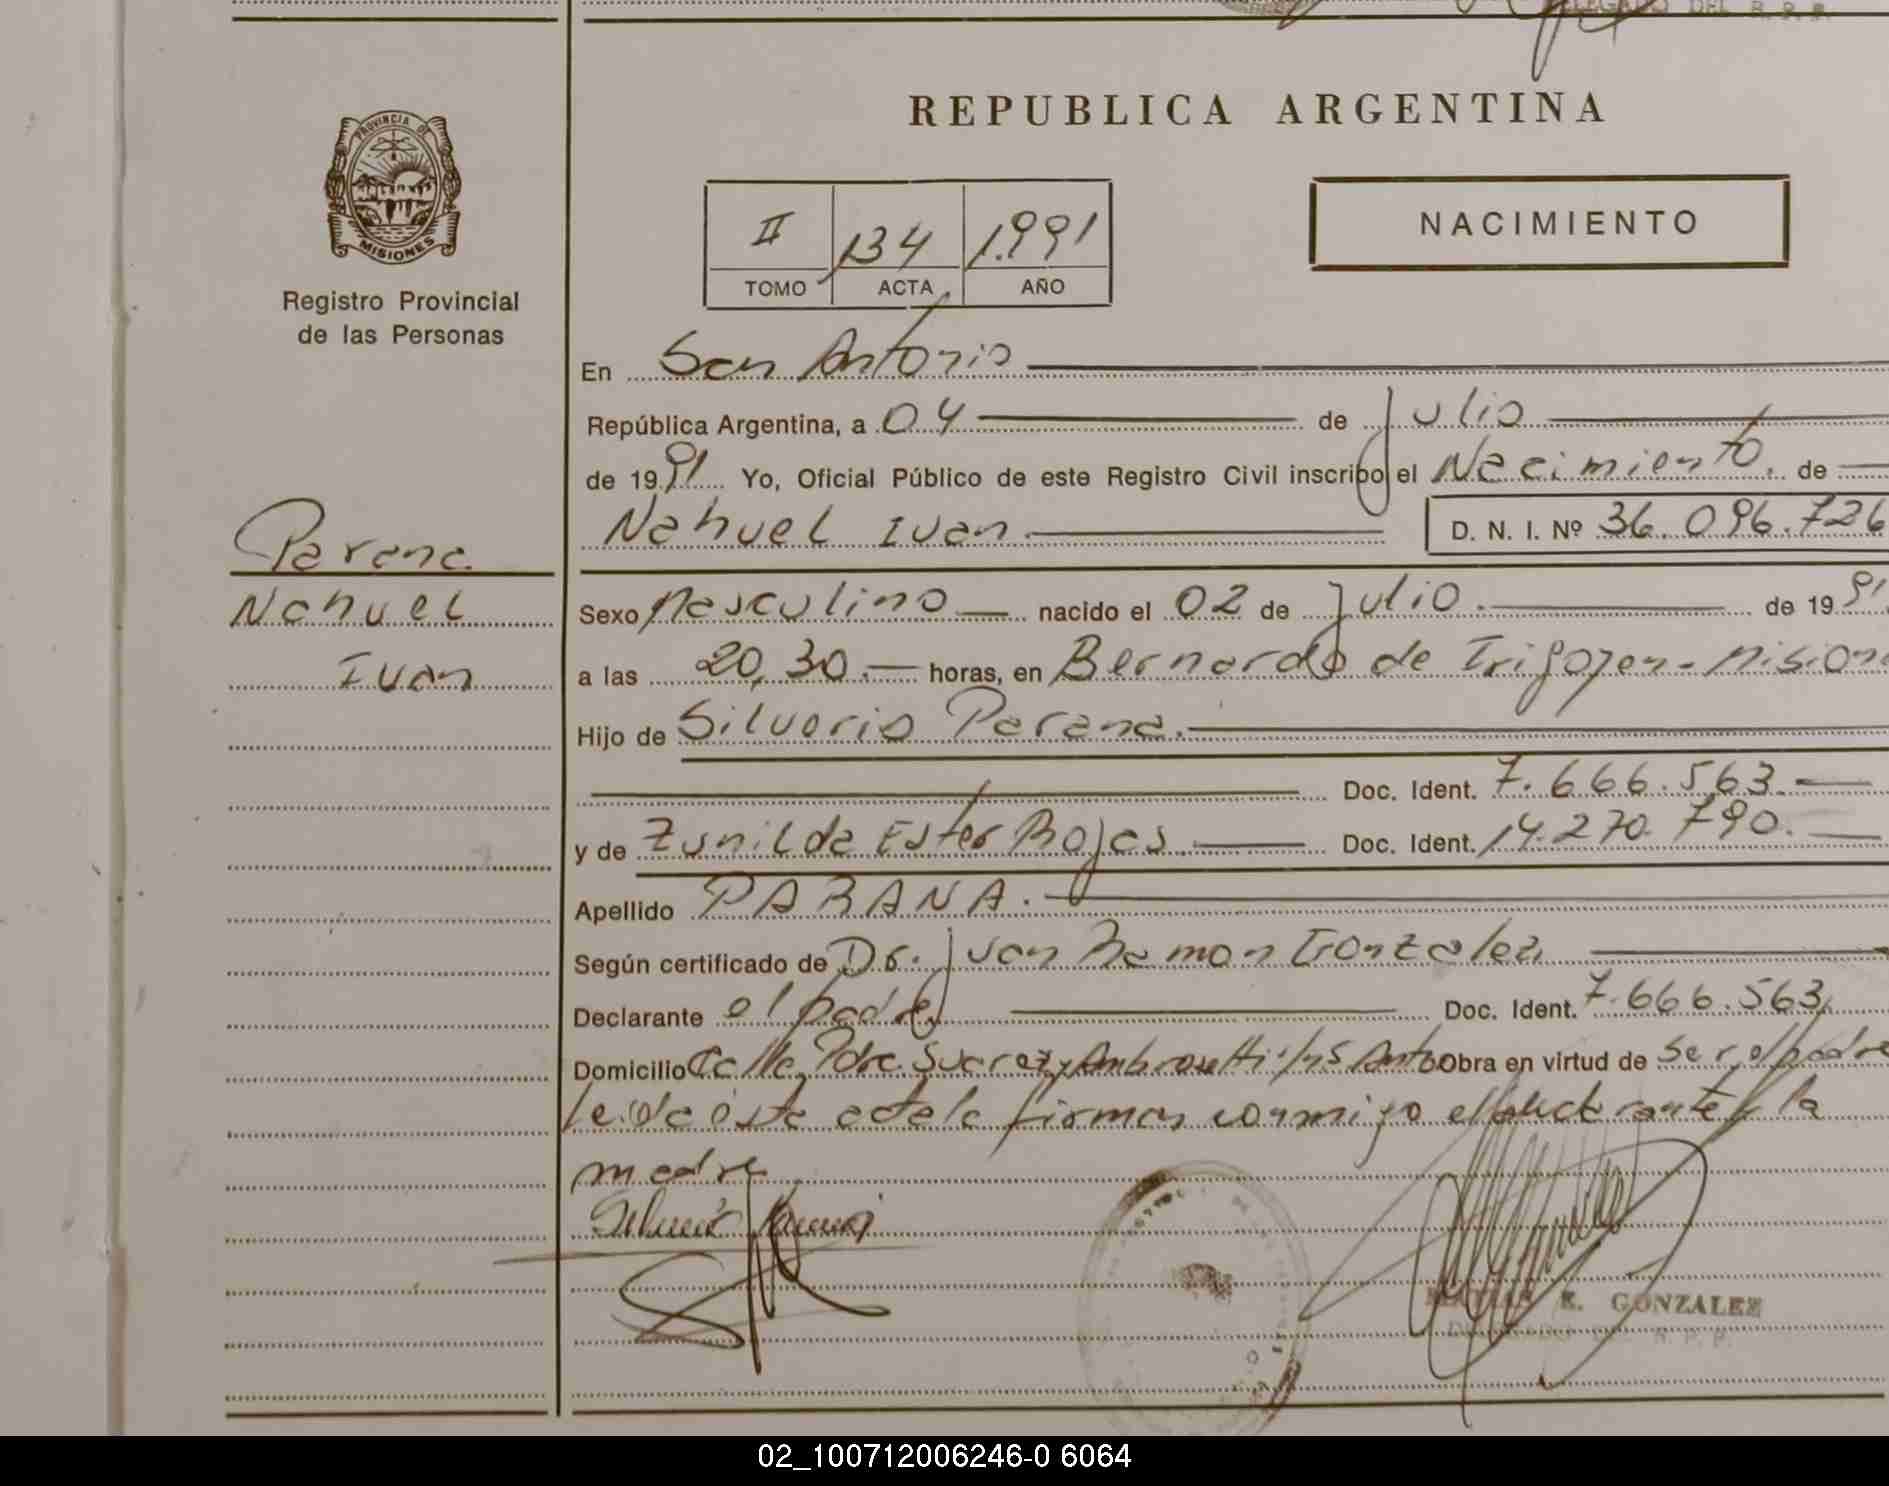 DELEGADO DEL R. P. P.
REPUBLICA ARGENTINA
PROVINCIA DE
MISIONES
Registro Provincial
de las Personas
II 134 1.991
TOMO ACTA AÑO
NACIMIENTO
En San Antonio
República Argentina, a 04 de Julio
de 1991 Yo, Oficial Público de este Registro Civil inscribo el Nacimiento. de
Nahuel Ivan D. N. I. Nº 36.096.726
Parana
Nahuel
Ivan
Sexo Masculino nacido el 02 de Julio. de 1991
a las 20,30. horas, en Bernardo de Irigoyen - Mision
Hijo de Silverio Parana.
Doc. Ident. 7.666.563.
y de Zunilda Ester Rojas. Doc. Ident. 14.270.790.
Apellido PARANA.
Según certificado de Dr. Juan Ramon Gonzalez
Declarante el padre Doc. Ident. 7.666.563
Domicilio Calle Pdre Suarez y Ambrosetti Obra en virtud de ser el padre
leida ésta acta la firman conmigo el y la
madre
E. GONZALEZ
DELEGADO DEL R. P. P.
02_100712006246-0 6064